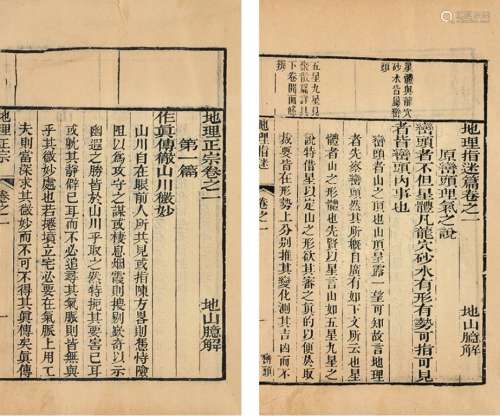 星體與龍穴
砂水皆屬巒
頭
五星九星見
張
下卷開面解
撰
地理指迷篇卷之一
地山臆解
原巒頭正氣之說
巒頭者不但星體凡龍穴砂水有形有勢可指可見
者皆巒頭內事也
巒頭者山也山頂星露一望可知故言地理
者先察巒頭然其所自廣有如下文所云也星
體者山之形也有如五星九星之
說特借星以定山之形欲其審之真的以便於取
裁要皆在形勢上分別推其變化測其吉凶而不
地理指迷
卷之一
巒頭
地理正宗卷之一
地山臆解
第一篇
作眞傳徹山川微妙
山川自在眼前人所共見或指陳方畧則憑恃險
阻以為攻守之謀或棲息烟霞則別嵚奇以示
幽遐之勝皆於山川乎取之然特扼其要害已耳
或耽其靜僻已耳而不必追尋其氣脈則皆無與
乎其微妙處也若墳立宅必要在氣脈上用工
夫則當深求其微妙而不可不得其眞傳矣眞傳
地理正宗
卷之一